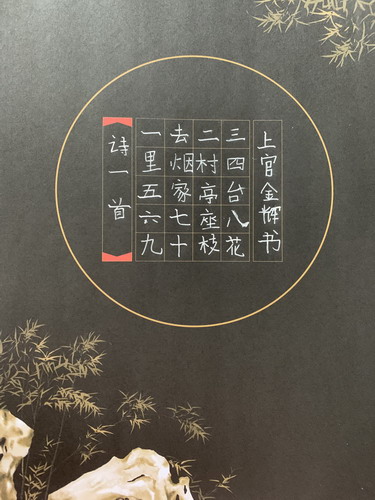 诗一首
一去二三
里烟村四
五家亭台
六七座八
九十枝花
上官金辉书